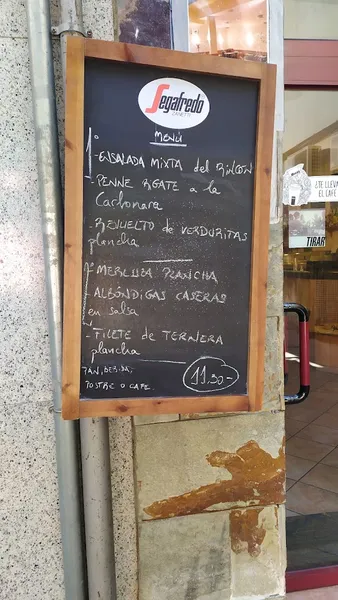 Segafredo
ZANETTI
MENÚ
1º
-ENSALADA MIXTA del RINCON
-PENNE RGATE a la
Carbonara
-REVUELTO de VERDURITAS
plancha
2º
-MERLUZA PLANCHA
-ALBÓNDIGAS CASERAS
en salsa
-FILETE de TERNERA
plancha
PAN, BEBIDA,
POSTRE O CAFE
11,30-
¿TE LLEVA
EL CAFÉ
TIRAR